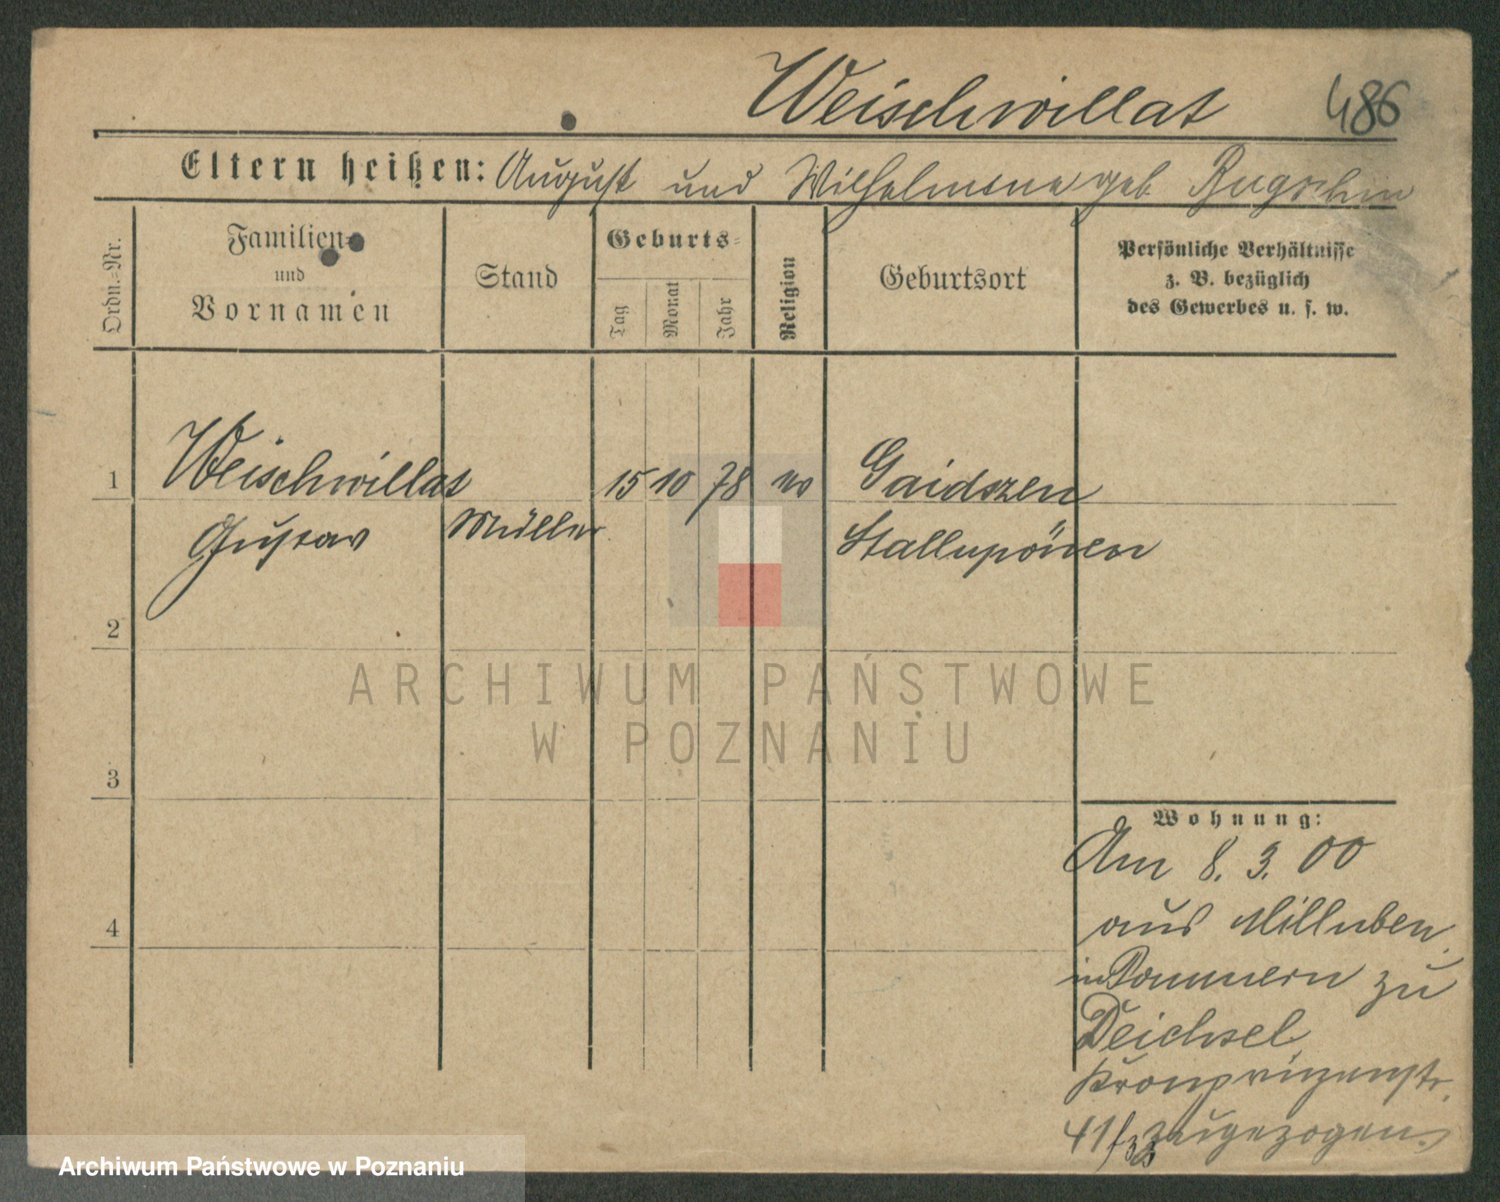 Weischwillat 486
Eltern heißen: August und Wilhelmine geb.
Ordn.-Nr.
Familien-
und
Vornamen
Stand
Geburts-
Tag
Monat
Jahr
Religion
Geburtsort
Persönliche Verhältnisse
z. B. bezüglich
des Gewerbes u. s. w.
1 Weischwillat 15 10 78 Gaidszen
Gustav Müller Stallupönen
2
ARCHIWUM PAŃSTWOWE
W POZNANIU
3
Wohnung:
Am 8. 3. 00
4 aus Milluben
in Pommern zu
Deichsel
Kronprinzenstr.
zugezogen.
Archiwum Państwowe w Poznaniu